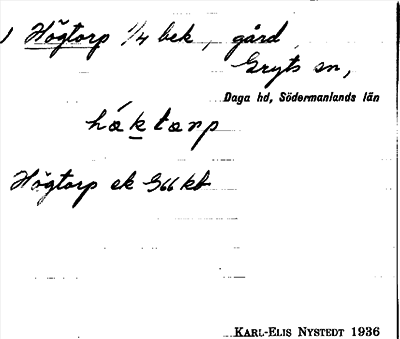 1 Högtorp 1/4 bek, gård
Gryts sn,
Daga hd, Södermanlands län
hǻktarp
Högtorp ek G66 kb
KARL-ELIS NYSTEDT 1936